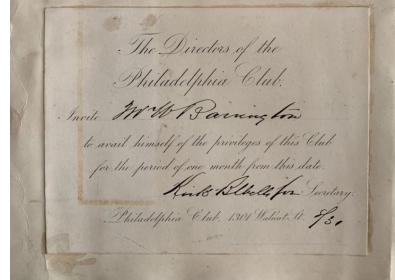 The Directors of the
Philadelphia Club.
Invite Mr W Barrington
to avail himself of the privileges of this Club
for the period of one month from this date.
Kirk Secretary.
Philadelphia Club, 1301 Walnut St. 8/31